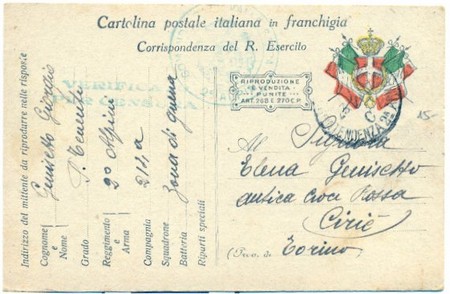 Cartolina postale italiana in franchigia
Corrispondenza del R. Esercito
VERIFICA
PER CENSURA
RIPRODUZIONE
E VENDITA
PUNITE
ART. 268 E 270 C.P.
15-
Indirizzo del mittente da riprodurre nelle risposte
Cognome e Nome Genisetto Giorgio
Grado S. Tenente
Reggimento e Arma 2º Alpini
Compagnia 214a
Squadrone
Batteria Zona di guerra
Riparti speciali
Al Signora
Elena Genisetto
antica Croce Rossa
Ciriè
(Prov. di Torino